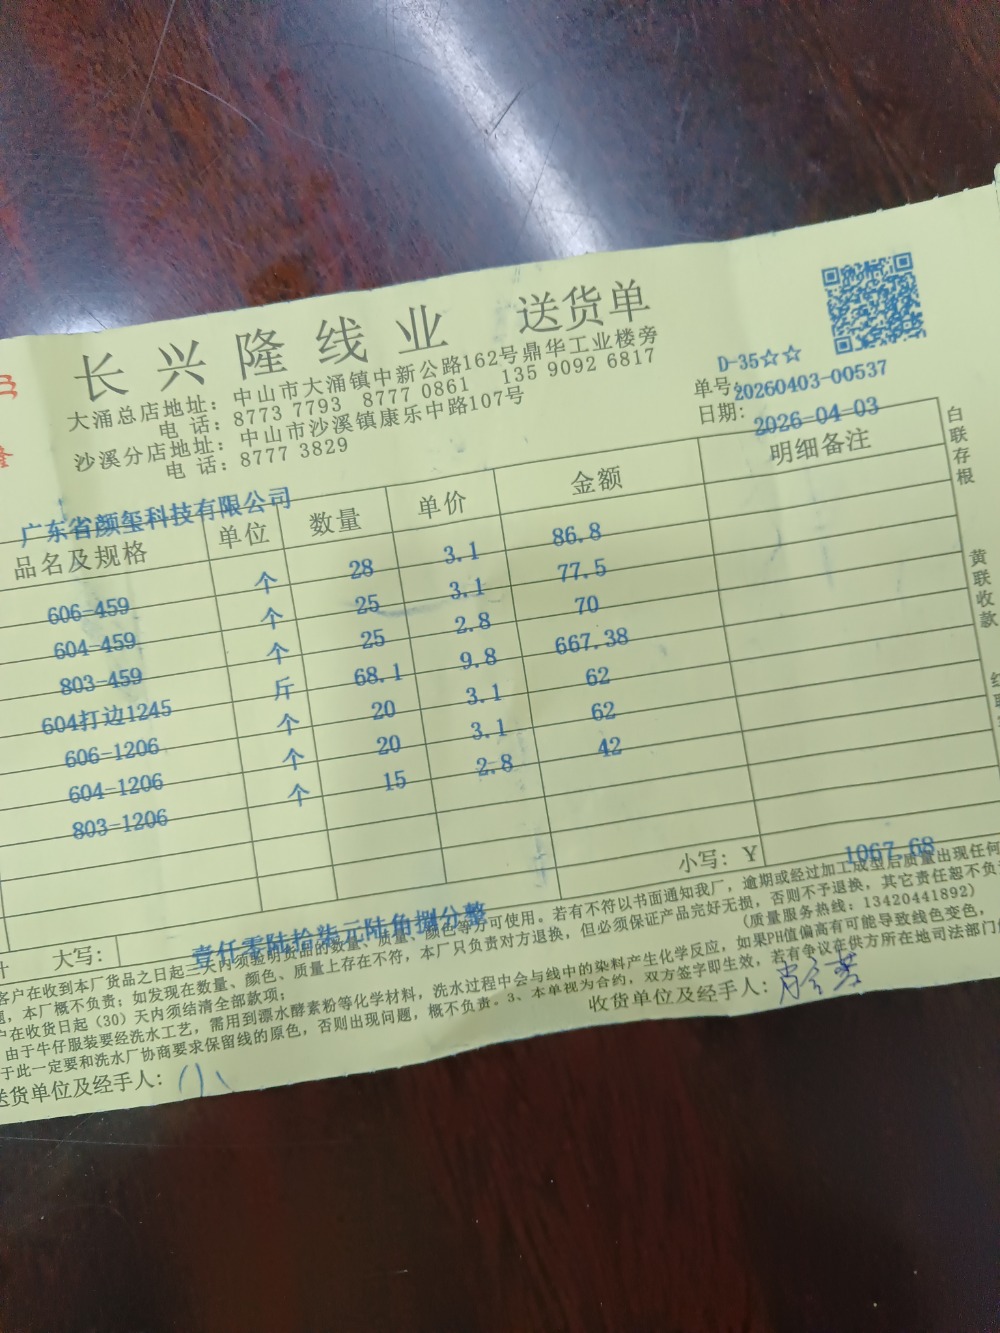 长兴隆线业 送货单
大涌总店地址：中山市大涌镇中新公路162号鼎华工业楼旁
电 话：8773 7793 8777 0861 135 9092 6817
沙溪分店地址：中山市沙溪镇康乐中路107号
电 话：8777 3829
D-35☆☆
单号:20260403-00537
日期: 2026-04-03
广东省颜玺科技有限公司
品名及规格 单位 数量 单价 金额 明细备注
606-459 个 28 3.1 86.8
604-459 个 25 3.1 77.5
803-459 个 25 2.8 70
604打边1245 斤 68.1 9.8 667.38
606-1206 个 20 3.1 62
604-1206 个 20 3.1 62
803-1206 个 15 2.8 42
小写：Y 1067.68
计 大写: 壹仟零陆拾柒元陆角捌分整
客户在收到本厂货品之日起三天内须验明货品的数量、质量、颜色等方可使用。若有不符以书面通知我厂，逾期或经过加工成型后质量出现任何
题，本厂概不负责；如发现在数量、颜色、质量上存在不符，本厂只负责对方退换，但必须保证产品完好无损，否则不予退换，其它责任恕不负责
户在收货日起（30）天内须结清全部款项；
（质量服务热线：13420441892）
由于牛仔服装要经洗水工艺，需用到漂水酵素粉等化学材料，洗水过程中会与线中的染料产生化学反应，如果PH值偏高有可能导致线色变色，
于此一定要和洗水厂协商要求保留线的原色，否则出现问题，概不负责。3、本单视为合约，双方签字即生效，若有争议在供方所在地司法部门
送货单位及经手人：
收货单位及经手人：
白联存根
黄联收款